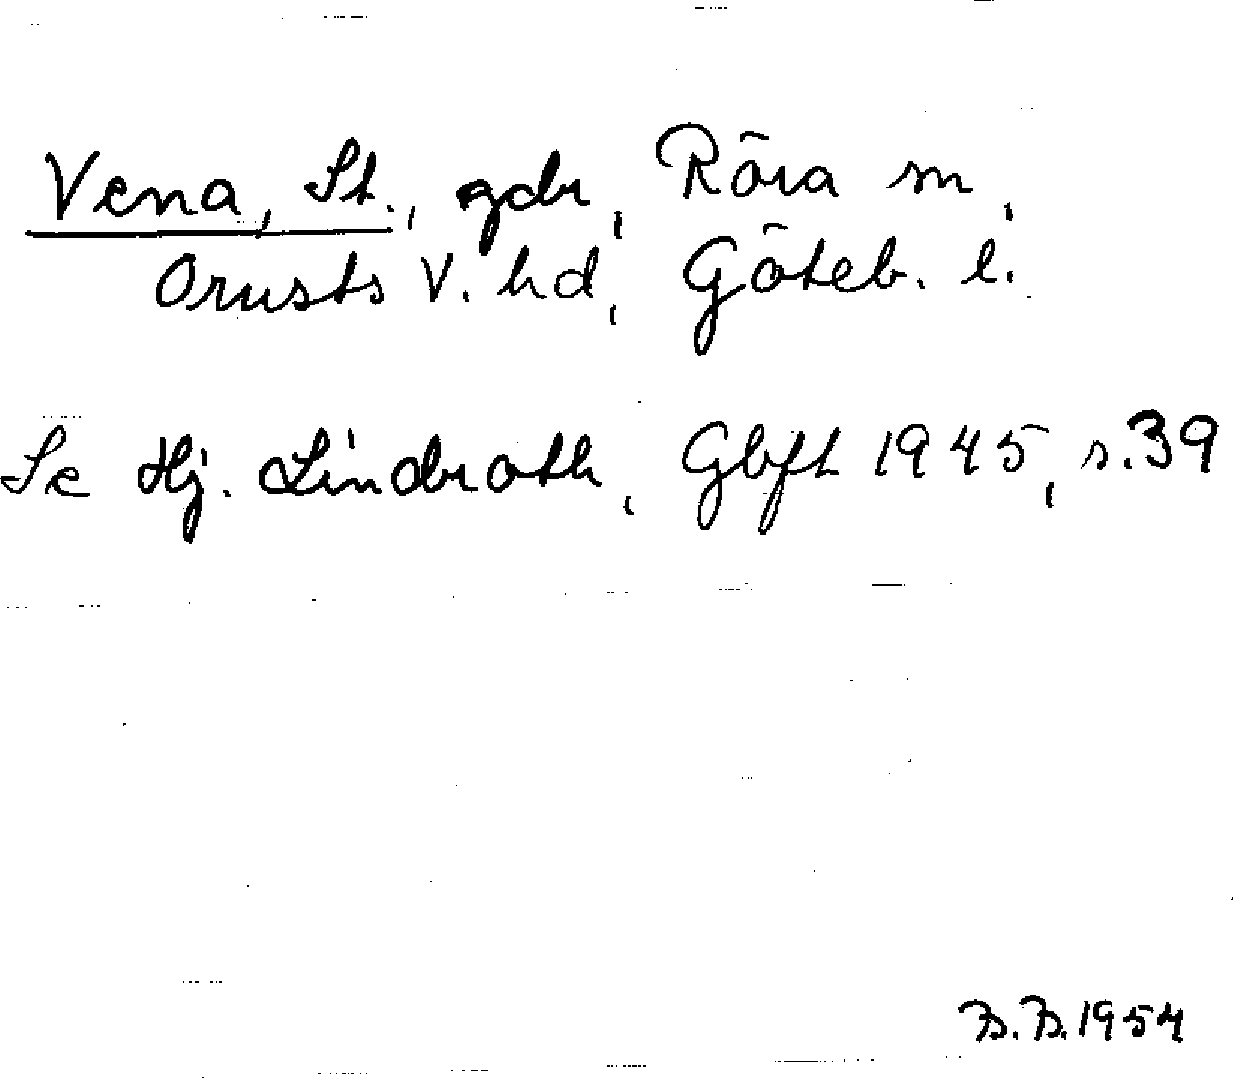 Vena, St., gdr, Röra sn,
Orusts V. hd, Göteb. l.
Se Hj. Lindroth, Gbft 1945, s. 39
B. B. 1954